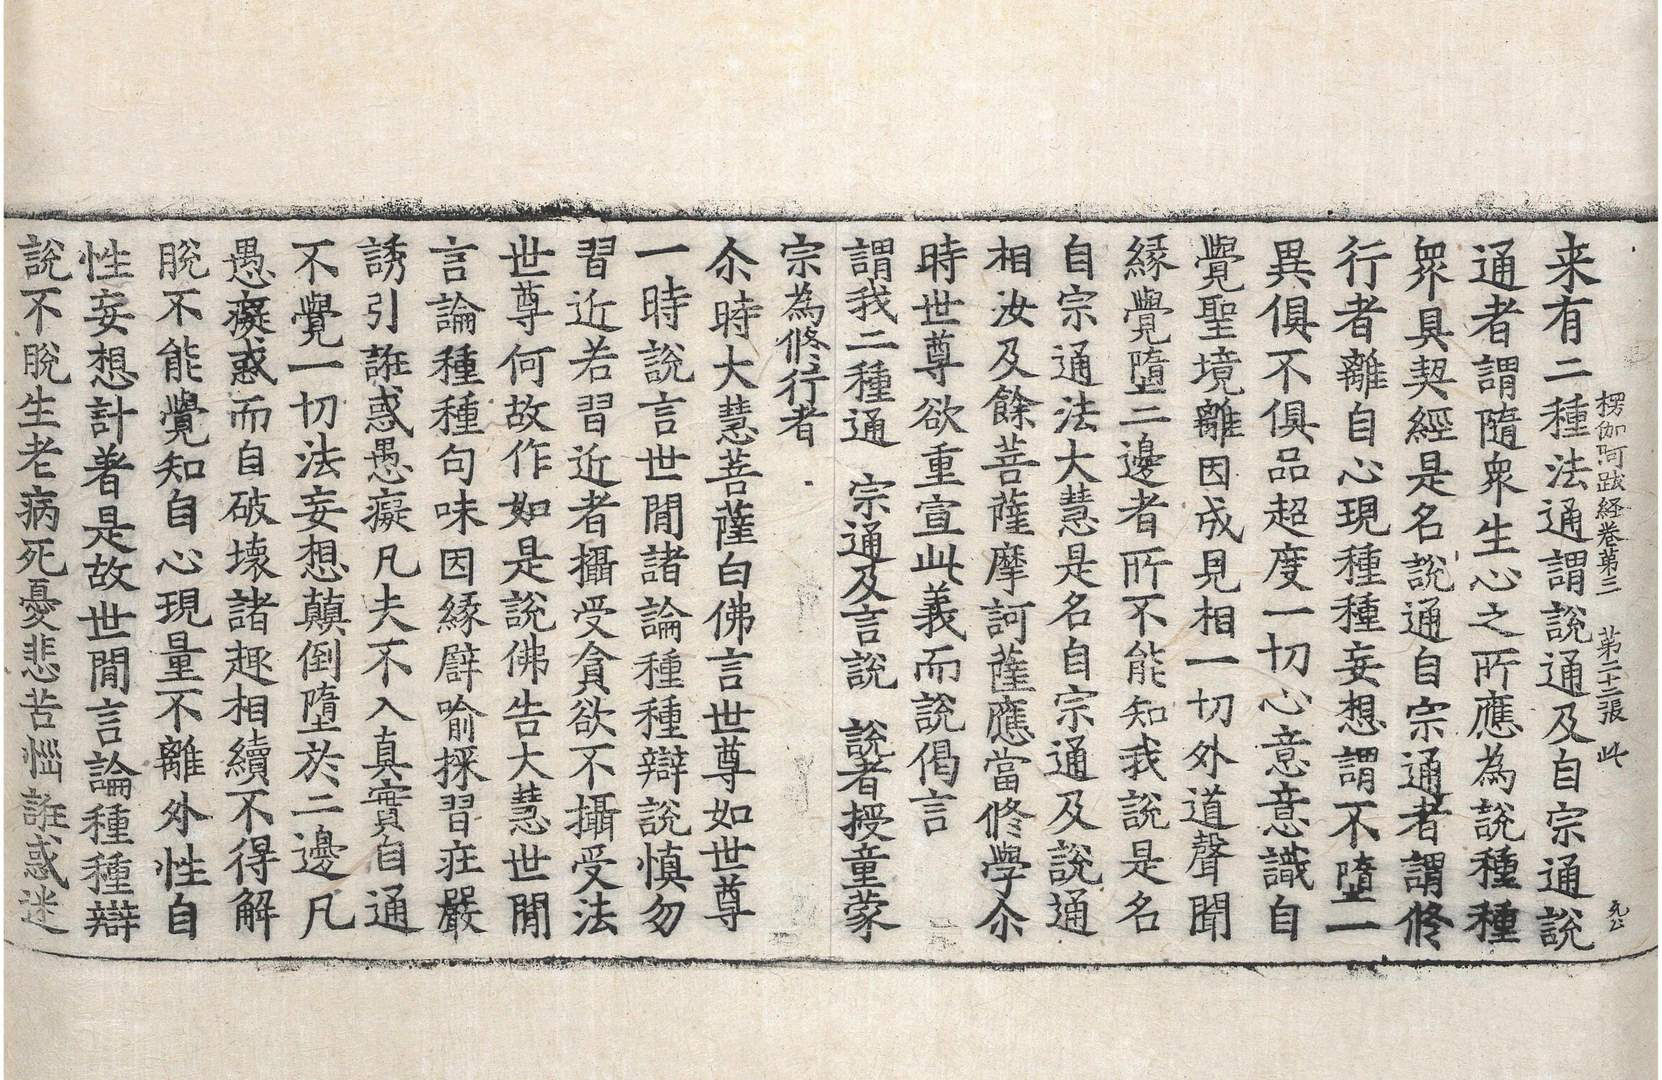 楞伽阿跋経卷第三 第二十二張 此
来有二種法通謂說通及自宗通說
通者謂隨衆生心之所應為說種種
衆具契經是名說通自宗通者謂修
行者離自心現種種妄想謂不墮一
異俱不俱品超度一切心意意識自
覺聖境離因成見相一切外道聲聞
緣覺墮二邊者所不能知我說是名
自宗通法大慧是名自宗通及說通
相汝及餘菩薩摩訶薩應當修學尒
時世尊欲重宣此義而說偈言
謂我二種通 宗通及言說 說者授童蒙
宗為修行者
尒時大慧菩薩白佛言世尊如世尊
一時說言世閒諸論種種辯說慎勿
習近若習近者攝受貪欲不攝受法
世尊何故作如是說佛告大慧世閒
言論種種句味因緣譬喻採習莊嚴
誘引誑惑愚癡凡夫不入真實自通
不覺一切法妄想顛倒墮於二邊凡
愚癡惑而自破壞諸趣相續不得解
脫不能覺知自心現量不離外性自
性妄想計著是故世閒言論種種辯
說不脫生老病死憂悲苦惱誑惑迷